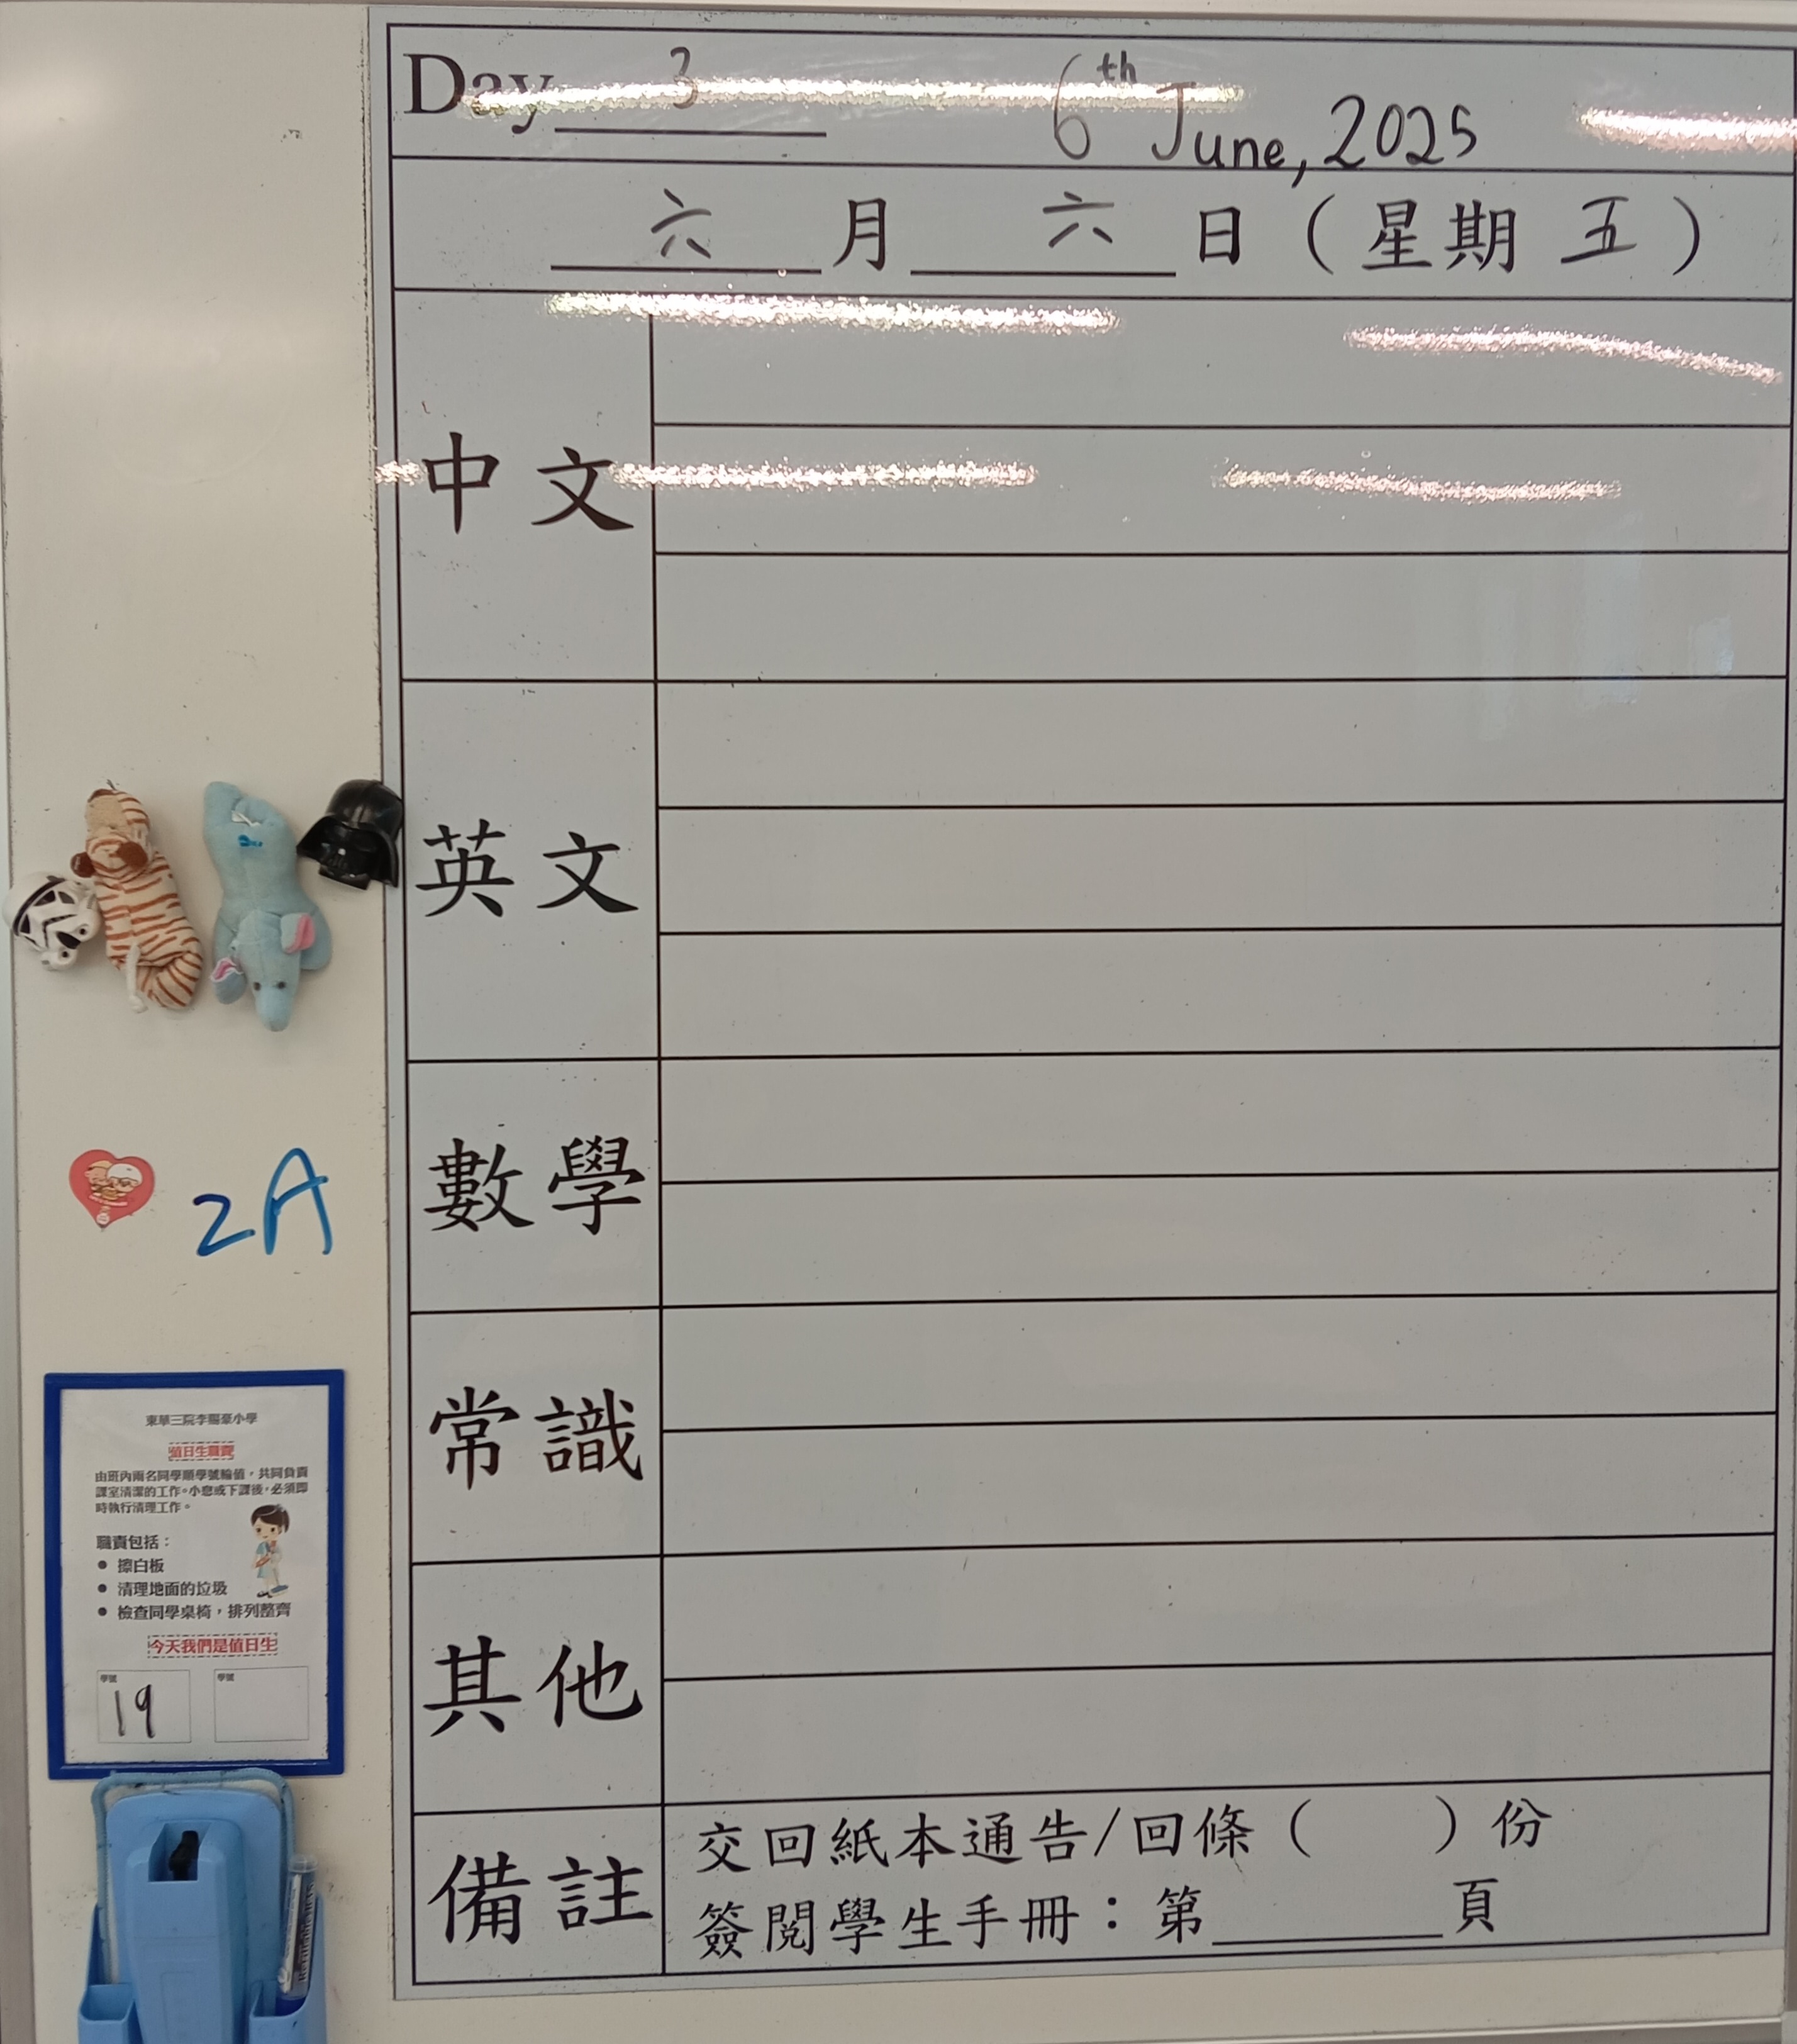 Day 3 6th June, 2025
六 月 六 日 ( 星 期 五 )
中文
英文
數學
常識
其他
備註
交回紙本通告/回條 ( ) 份
簽閱學生手冊：第______頁
2A
東華三院李賜豪小學
值日生職責
由班內兩名同學順學號輪值，共同負責
課室清潔的工作。小息或下課後，必須即
時執行清理工作。
職責包括：
● 擦白板
● 清理地面的垃圾
● 檢查同學桌椅，排列整齊
今天我們是值日生
學號 學號
19